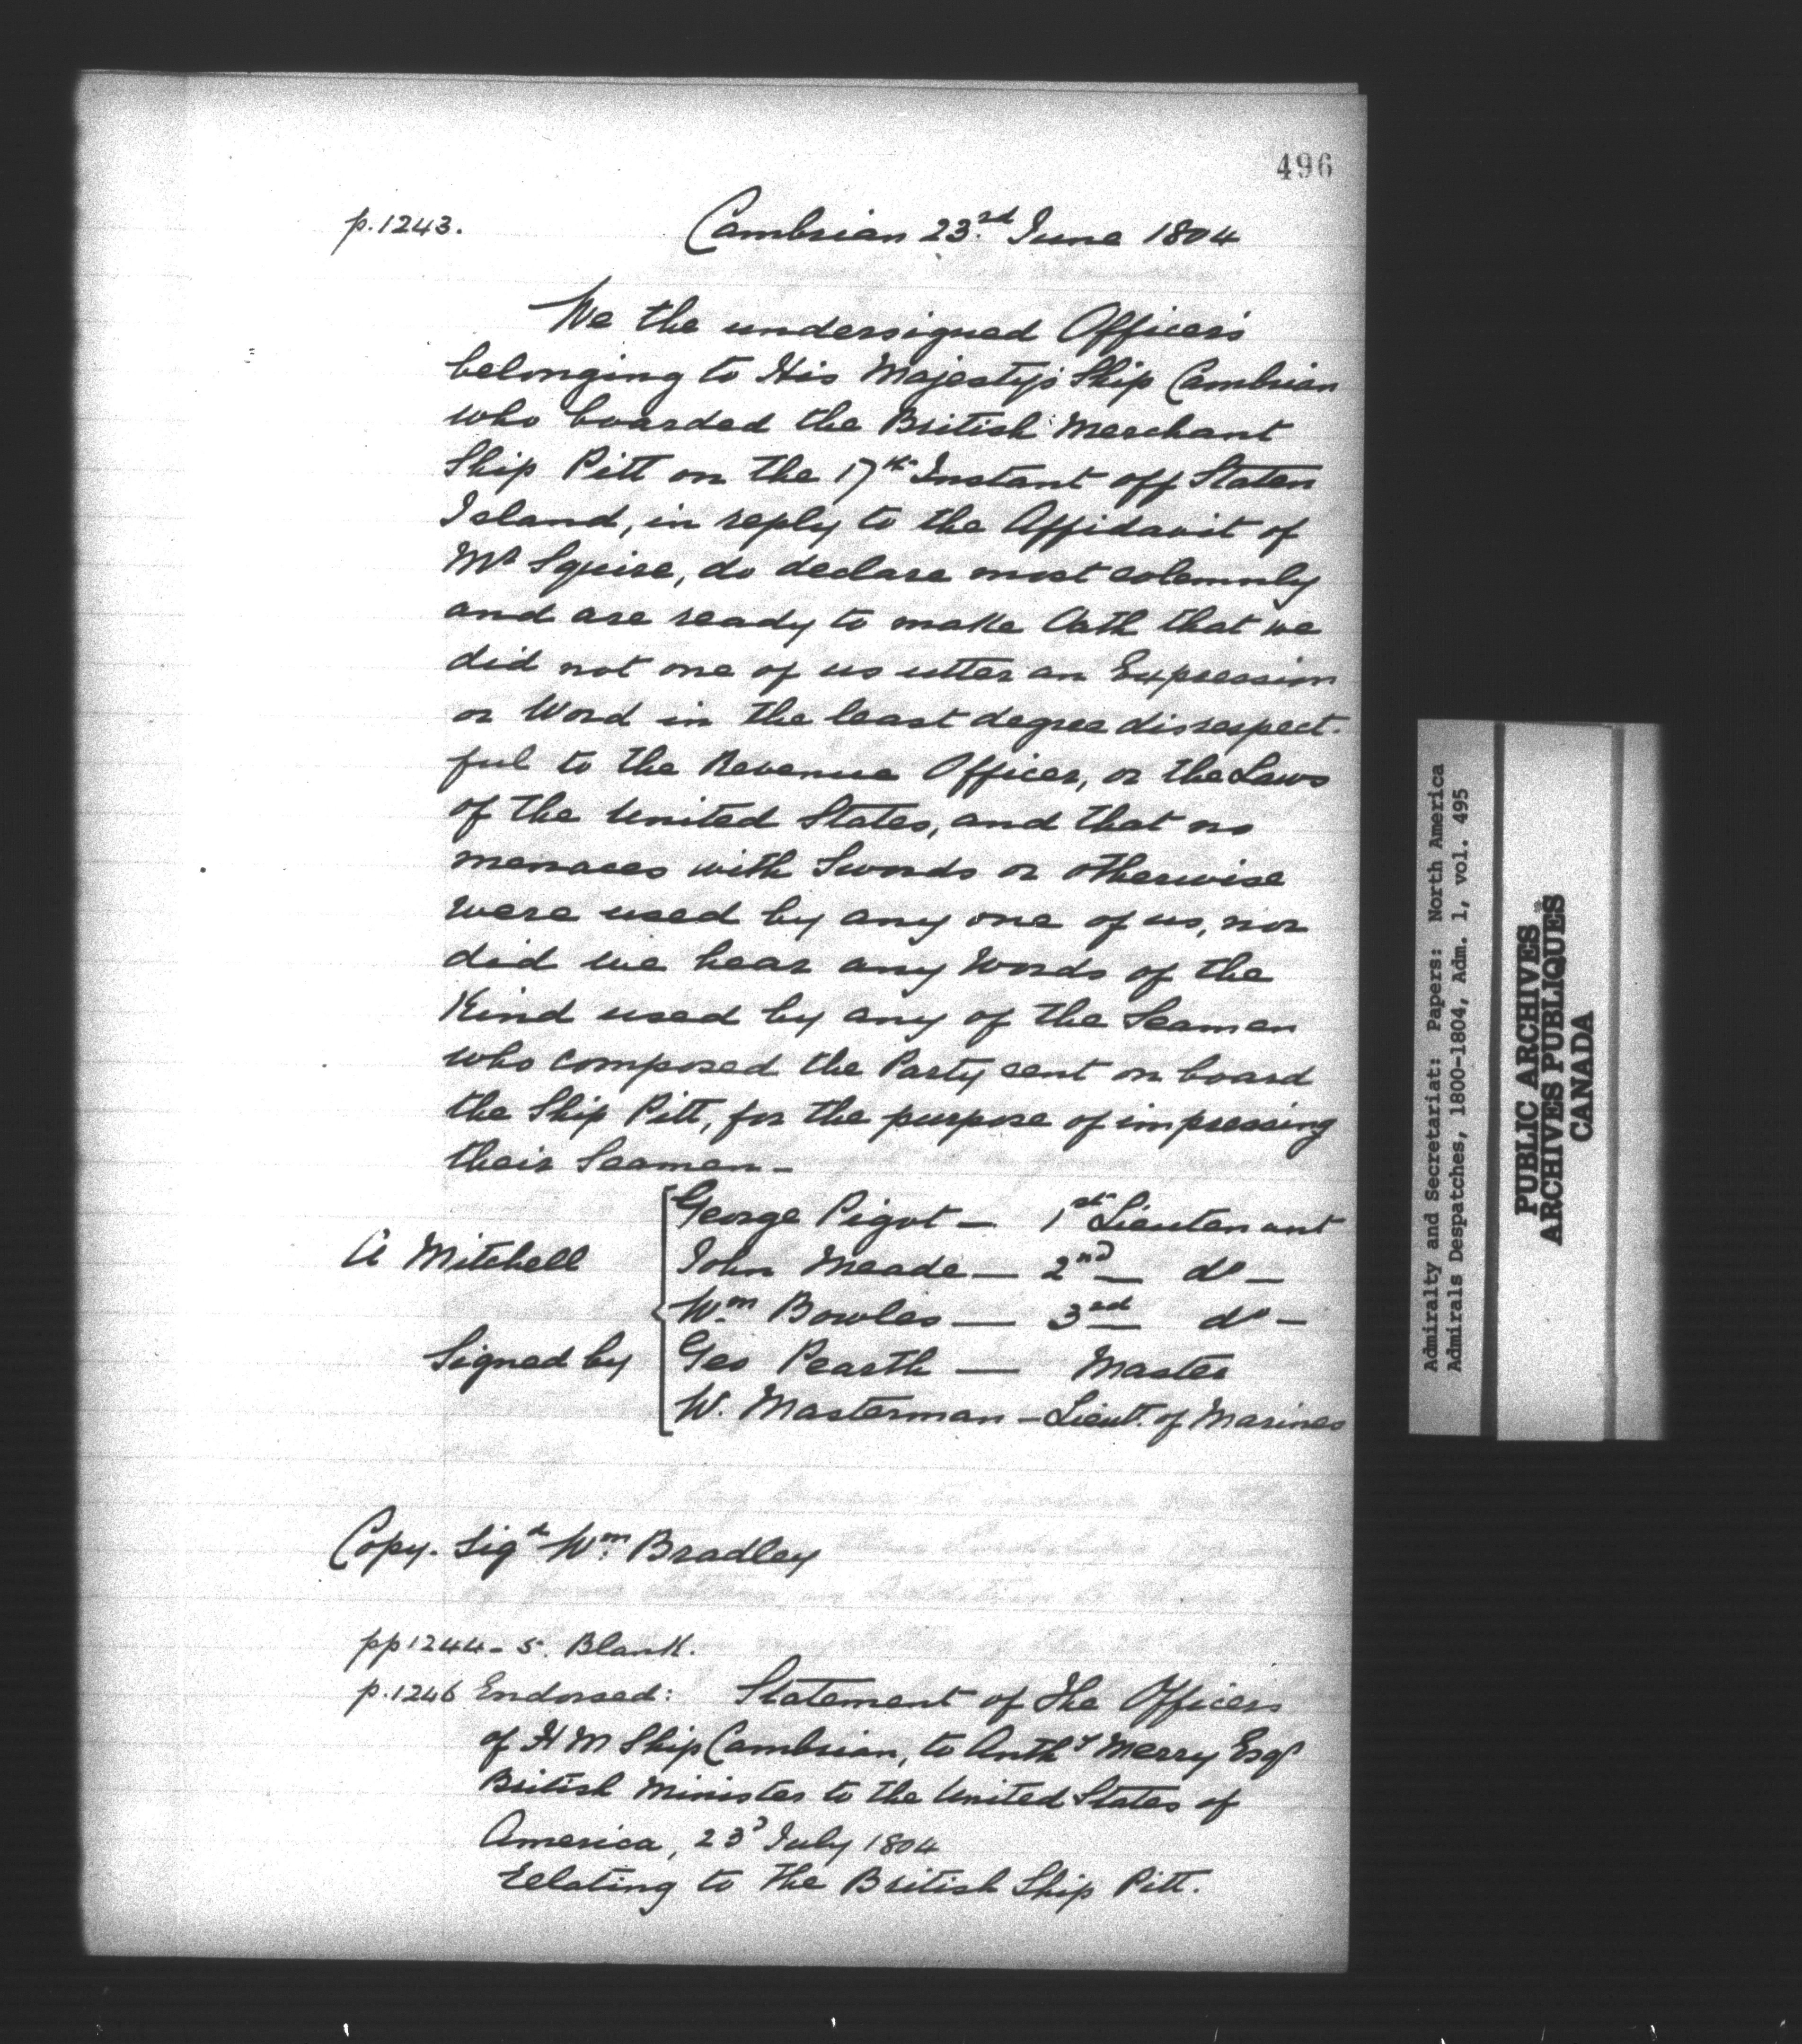 496
p.1243. Cambrian 23.rd June 1804
We the undersigned Officers
belonging to His Majesty's Ship Cambrian
who boarded the British Merchant
Ship Pitt on the 17th Instant off Staten
Island, in reply to the Affidavit of
Mr Squire, do declare most solemnly
and are ready to make Oath that we
did not one of us utter an Expression
or Word in the least degree disrespect-
ful to the Revenue Officer, or the Laws
of the United States, and that no
menaces with Swords or otherwise
were used by any one of us, nor
did we hear any Words of the
Kind used by any of the Seamen
who composed the Party sent on board
the Ship Pitt, for the purpose of impressing
their Seamen -
George Pigot - 1st Lieutenant
A Mitchell John Meade - 2nd do -
Wm Bowles - 3rd do -
Signed by Geo Pearth - Master
W. Masterman - Lieut. of Marines
Copy. Sigd Wm Bradley
pp 1244-5. Blank.
p.1246 Endorsed: Statement of the Officers
of H M Ship Cambrian, to Anthy Merry Esqr
British Minister to the United States of
America, 23d July 1804
relating to the British Ship Pitt.
Admiralty and Secretariat: Papers: North America
Admirals Despatches, 1800-1804, Adm. 1, vol. 495
PUBLIC ARCHIVES
ARCHIVES PUBLIQUES
CANADA